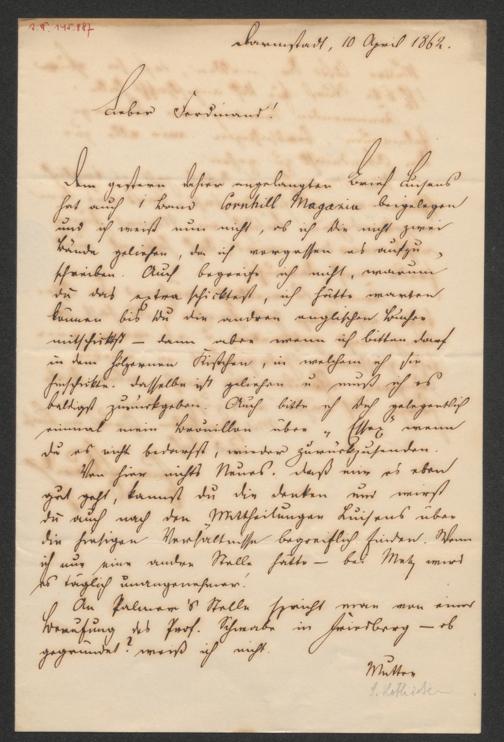 Darmstadt, 10 April 1862.
Lieber Ferdinand!
Dem gestern dahier angelangten Brief Luisens
hat auch 1 Band Cornhill Magazin beigelegen
und ich weiß nun nicht, ob ich Dir nicht zwei
Bände geliehen, da ich vergessen es aufzu-
schreiben. Auch begreife ich nicht, warum
du das extra schicktest, ich hätte warten
können bis du die andren englischen Bücher
mitschickst — dann aber wenn ich bitten darf
in dem hölzernen Kistchen, in welchem ich sie
hinschickte. Dasselbe ist geliehen u. muß ich es
baldigst zurückgeben. Auch bitte ich Dich gelegentlich
einmal mein Brouillon über „Essex“ wenn
du es nicht bedarfst, wieder zurückzusenden.
Von hier nichts Neues. Daß mir es eben
gut geht, kannst du dir denken und wirst
du auch nach den Mittheilungen Luisens über
die hiesigen Verhältnisse begreiflich finden. Wenn
ich nur eine andre Stelle hätte — bei Metz wird
es täglich unangenehmer!
An Palmer's Stelle spricht man von einer
Berufung des Prof. Schwabe in Friedberg — ob
gegründet? weiß ich nicht.